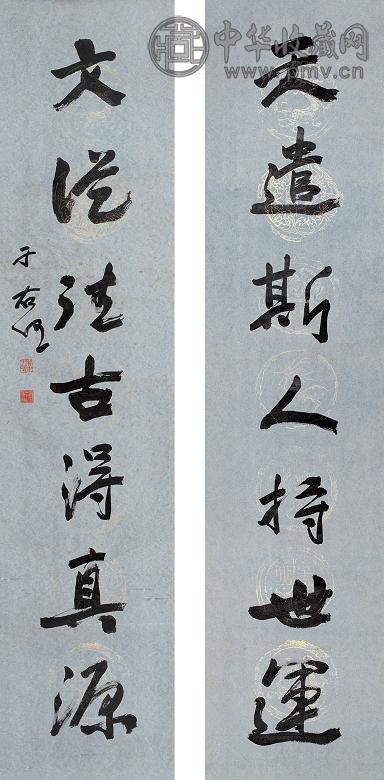 中华收藏网
www.pmv.cn
天遣斯人持世運
文從往古得真源
于右任